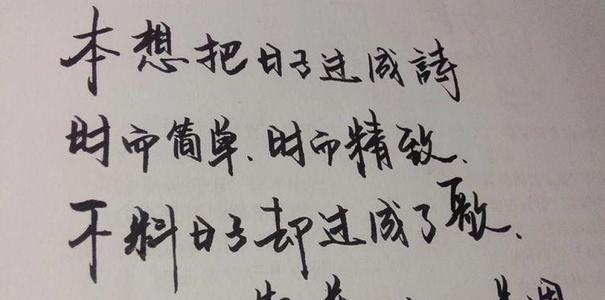 本想把日子过成詩
时而简单、时而精致、
不料日子却过成了歌、